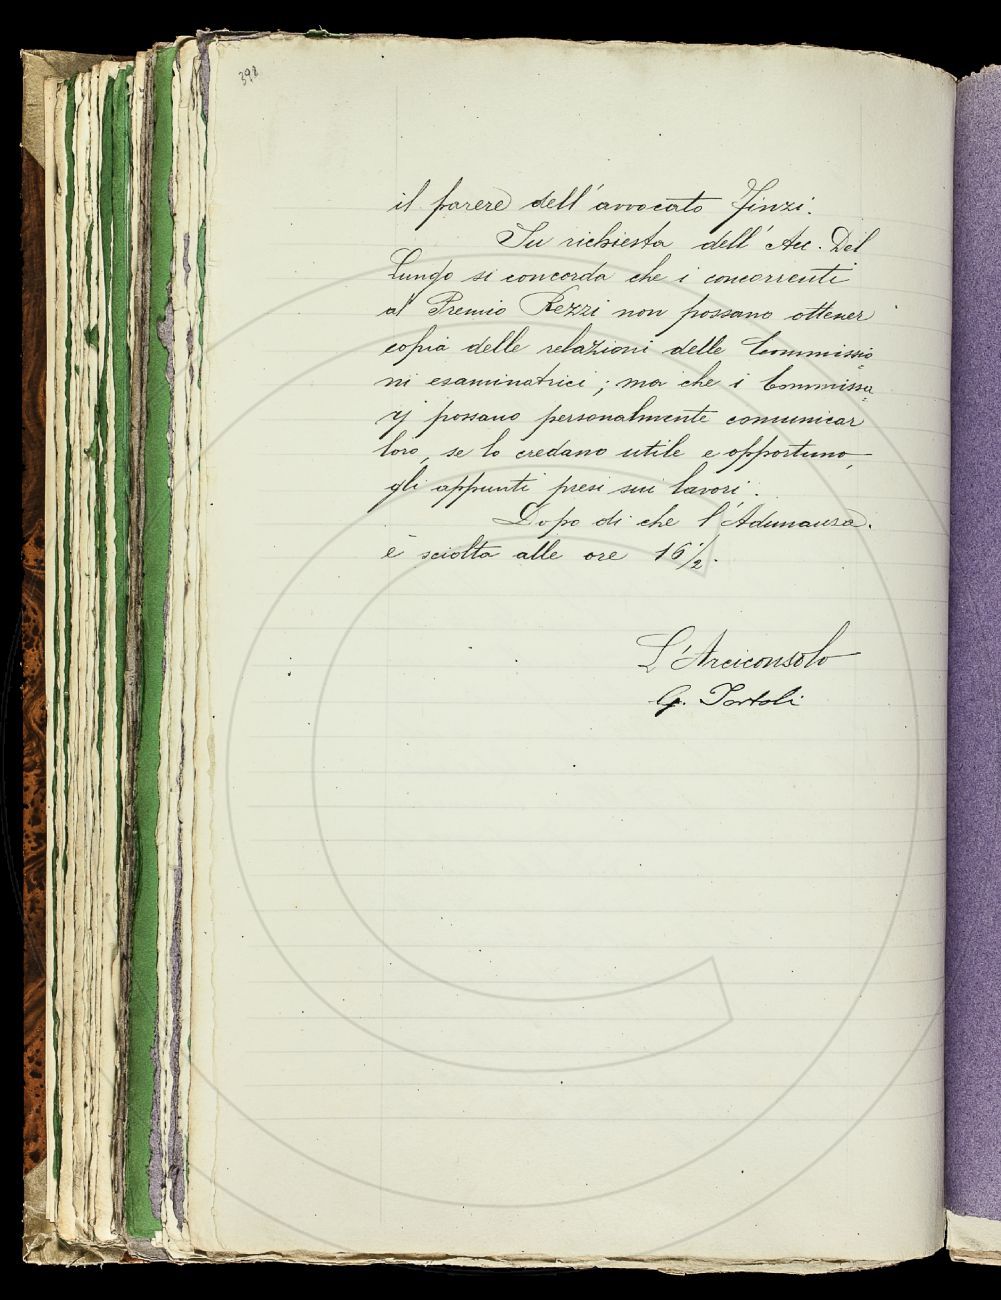 398
il parere dell'avvocato Finzi.
Su richiesta dell'Acc. Del
Lungo si concorda che i concorrenti
al Premio Rezzi non possano ottener
copia delle relazioni delle Commissio
ni esaminatrici; ma che i Commissa
rj possano personalmente comunicar
loro, se lo credano utile e opportuno,
gli appunti presi sui lavori.
Dopo di che l'Adunanza
è sciolta alle ore 16 1/2.
L'Arciconsolo
G. Tortoli